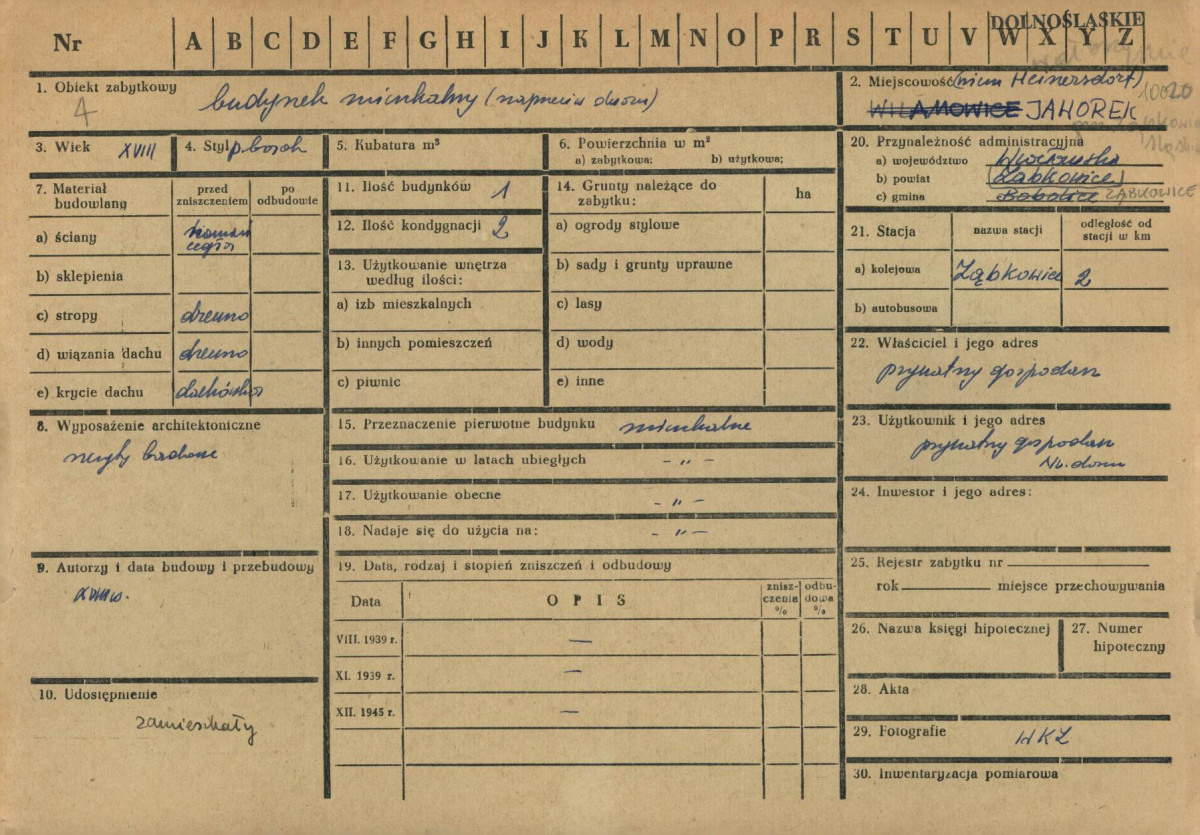 DOLNOŚLĄSKIE
Nr A B C D E F G H I J K L M N O P R S T U V W X Y Z
1. Obiekt zabytkowy
4
budynek mieszkalny (naprzeciw dworu)
2. Miejscowość (niem Heinersdorf)
WILAMOWICE JAWOREK
10020
3. Wiek XVIII
4. Styl p. barok
5. Kubatura m³
6. Powierzchnia w m²
a) zabytkowa: b) użytkowa:
7. Materiał budowlany
przed zniszczeniem
po odbudowie
a) ściany kamień cegła
b) sklepienia
c) stropy drewno
d) wiązania dachu drewno
e) krycie dachu dachówka
8. Wyposażenie architektoniczne
9. Autorzy i data budowy i przebudowy
XVIII w.
10. Udostępnienie
zamieszkały
11. Ilość budynków 1
12. Ilość kondygnacji 2
13. Użytkowanie wnętrza według ilości:
a) izb mieszkalnych
b) innych pomieszczeń
c) piwnic
14. Grunty należące do zabytku: ha
a) ogrody stylowe
b) sady i grunty uprawne
c) lasy
d) wody
e) inne
15. Przeznaczenie pierwotne budynku mieszkalne
16. Użytkowanie w latach ubiegłych - „ -
17. Użytkowanie obecne - „ -
18. Nadaje się do użycia na: - „ -
19. Data, rodzaj i stopień zniszczeń i odbudowy
Data OPIS znisz-czenia % odbu-dowa %
VIII. 1939 r. —
XI. 1939 r. —
XII. 1945 r. —
20. Przynależność administracyjna
a) województwo Wrocławskie
b) powiat (Ząbkowice)
c) gmina Bobolice ZĄBKOWICE
21. Stacja
nazwa stacji
odległość od stacji w km
a) kolejowa Ząbkowice 2
b) autobusowa
22. Właściciel i jego adres
prywatny gospodarz
23. Użytkownik i jego adres
prywatny gospodarz
Nr. domu
24. Inwestor i jego adres:
25. Rejestr zabytku nr
rok miejsce przechowywania
26. Nazwa księgi hipotecznej
27. Numer hipoteczny
28. Akta
29. Fotografie WKZ
30. Inwentaryzacja pomiarowa